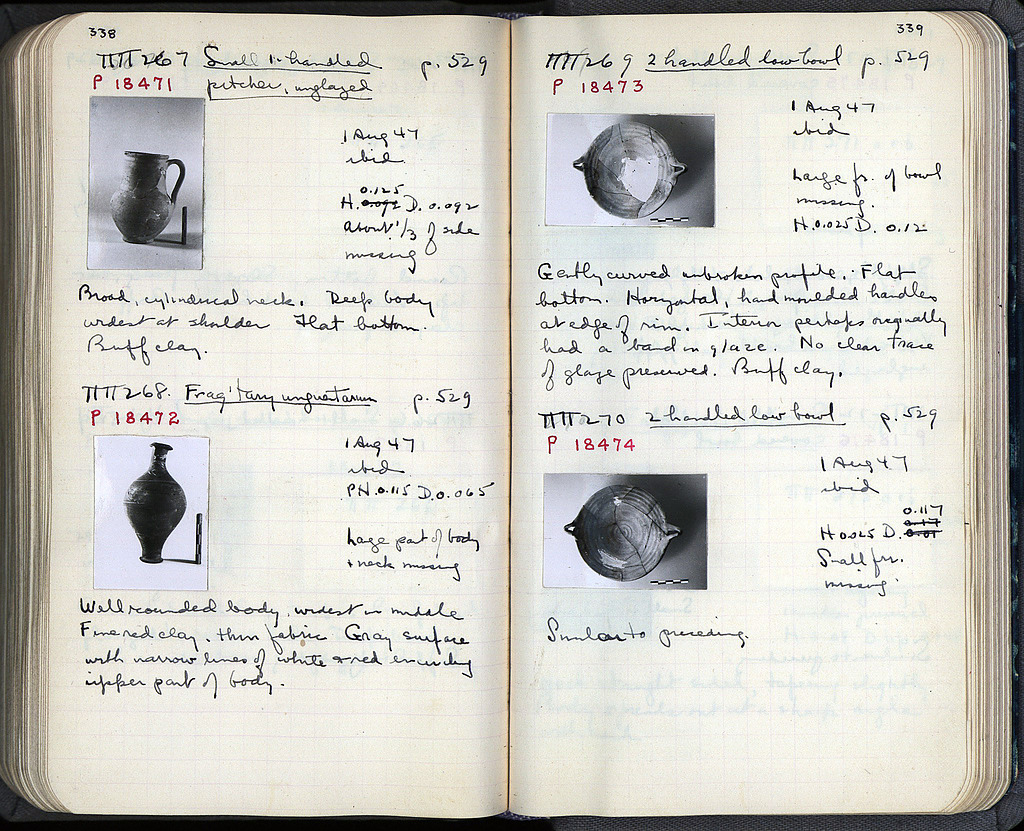 338
ΠΠ 267 Small 1-handled p. 529
P 18471 pitcher, unglazed
1 Aug 47
ibid
0.125
H. 0.092 D. 0.092
About 1/3 of side
missing
Broad, cylindrical neck. Deep body
widest at shoulder Flat bottom.
Buff clay.
ΠΠ 268. Frag'tary unguentarium p. 529
P 18472
1 Aug 47
ibid.
PH. 0.115 D. 0.065
Large part of body
+ neck missing
Well rounded body, widest in middle
Fine red clay, thin fabric Gray surface
with narrow lines of white & red encircling
upper part of body.
339
ΠΠ 269 2 handled low bowl p. 529
P 18473
1 Aug 47
ibid
Large fr. of bowl
missing.
H. 0.025 D. 0.12
Gently curved unbroken profile. Flat
bottom. Horizontal, hand moulded handles
at edge of rim. Interior perhaps originally
had a band in glaze. No clear trace
of glaze preserved. Buff clay.
ΠΠ 270 2 handled low bowl p. 529
P 18474
1 Aug 47
ibid
0.117
H 0.025 D.
Small frr.
missing
Similar to preceding.